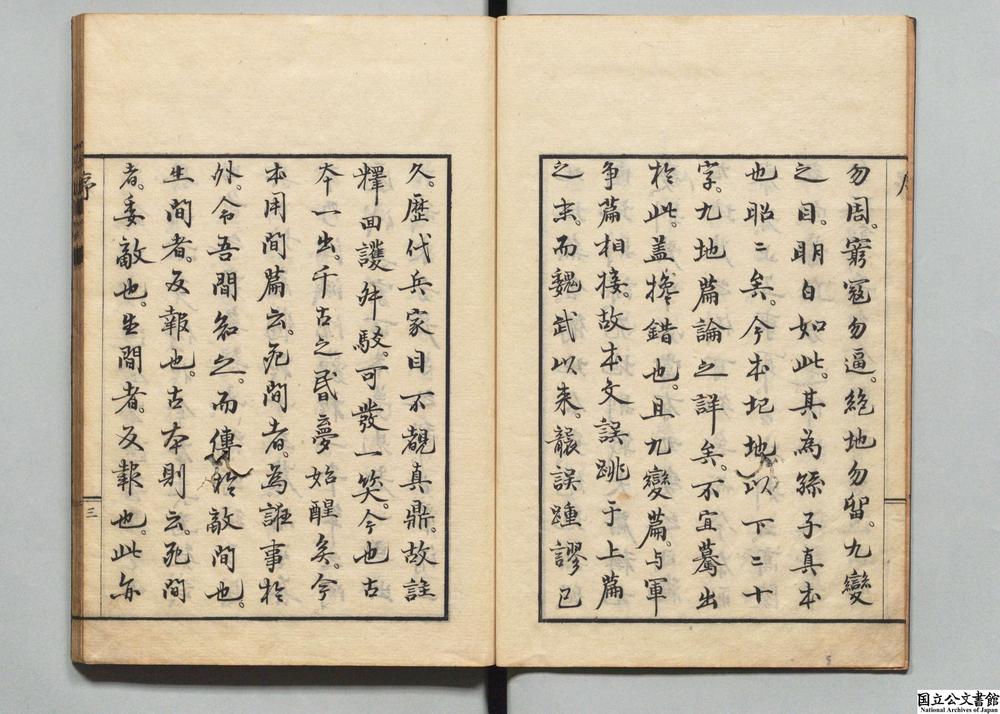 勿周。窮寇勿逼。絶地勿畱。九變
之目。明白如此。其為孫子真本
也昭二矣。今本圮地以下二十
字。九地篇論之詳矣。不宜驀出
於此。盖攙錯也。且九變篇。与軍
争篇相接。故本文誤跳于上篇
之末。而魏武以来。襲誤踵謬已
久。歴代兵家目不覩真鼎。故註
釋回護舛駁。可發一笑。今也古
本一出。千古之昏夢始醒矣。今
本用間篇云。死間者。為誑事於
外。令吾間知之。而傳於敵間也。
生間者。反報也。古本則云。死間
者。委敵也。生間者。反報也。此亦
序
三
国立公文書館
National Archives of Japan